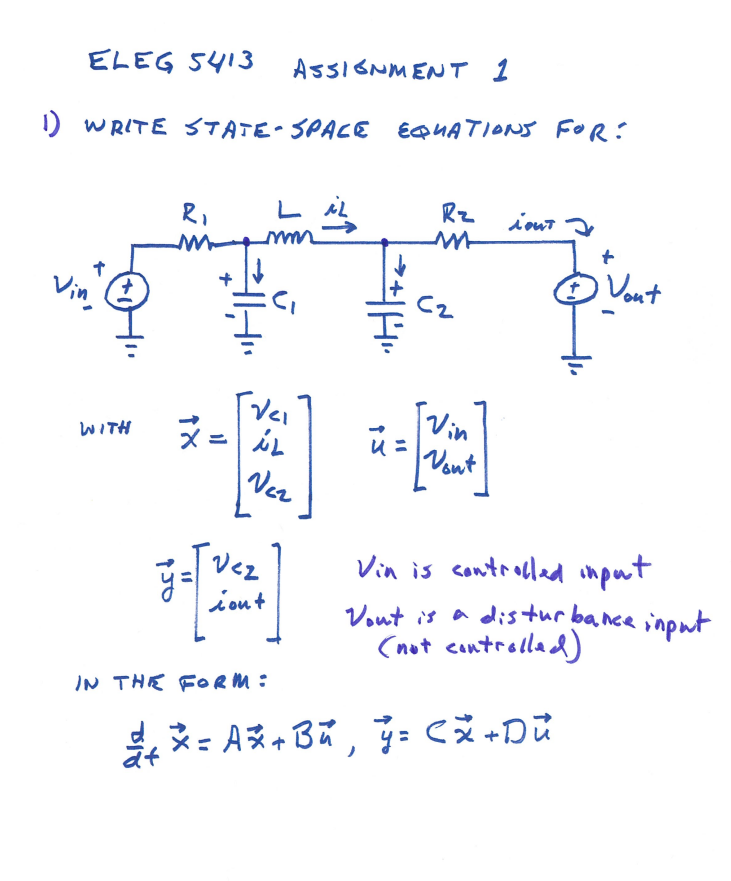 ELEG 5413 ASSIGNMENT 1
1) WRITE STATE-SPACE EQUATIONS FOR:
R1 L iL R2 iout
Vin + - + - + C1 - + C2 - + - + Vout -
WITH x = [VC1 iL VC2] u = [Vin Vout]
y = [VC2 iout]
Vin is controlled input
Vout is a disturbance input
(not controlled)
IN THE FORM:
d/dt x = Ax + Bu, y = Cx + Du